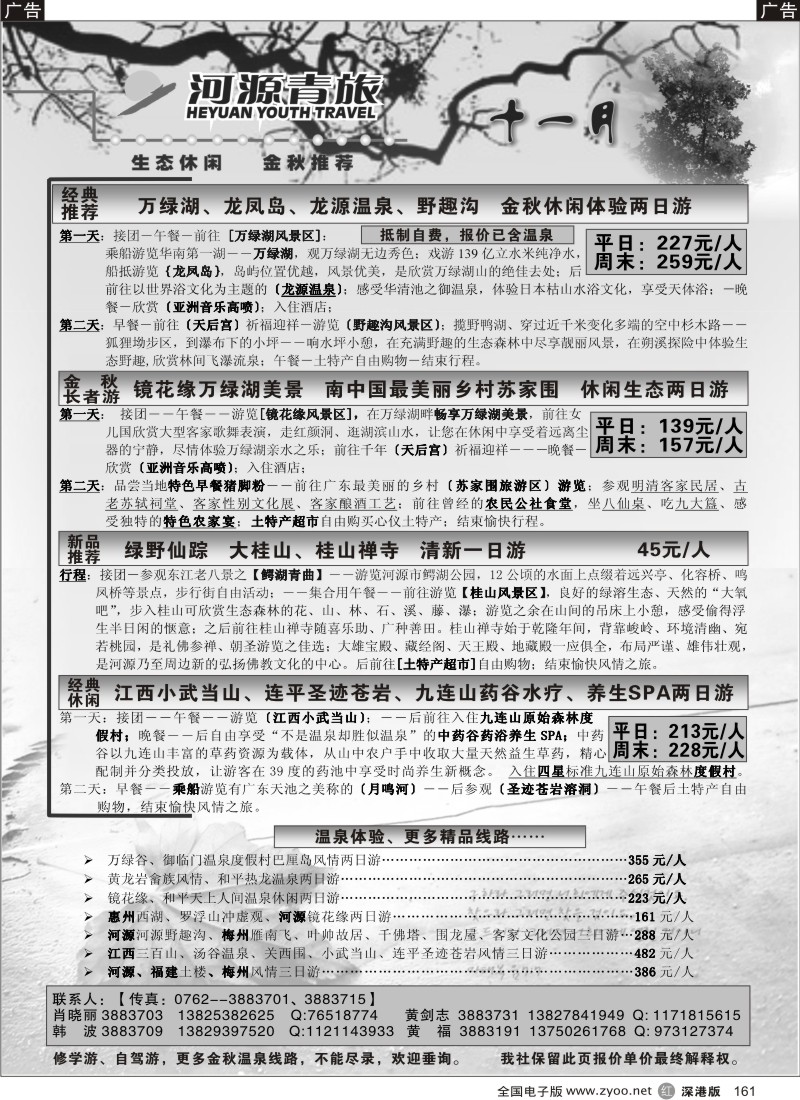 广告
广告
河源青旅
HEYUAN YOUTH TRAVEL
十一月
生态休闲 金秋推荐
经典推荐 万绿湖、龙凤岛、龙源温泉、野趣沟 金秋休闲体验两日游
第一天：接团－午餐－前往［万绿湖风景区］： 抵制自费，报价已含温泉
平日：227元/人
周末：259元/人
乘船游览华南第一湖－－万绿湖，观万绿湖无边秀色；戏游 139 亿立水米纯净水，
船抵游览｛龙凤岛｝，岛屿位置优越，风景优美，是欣赏万绿湖山的绝佳去处；后
前往以世界浴文化为主题的〔龙源温泉〕；感受华清池之御温泉，体验日本枯山水浴文化，享受天体浴；－晚
餐－欣赏〔亚洲音乐高喷〕；入住酒店；
第二天：早餐－前往〔天后宫〕祈福迎祥－游览〔野趣沟风景区〕；揽野鸭湖、穿过近千米变化多端的空中杉木路－－
狐狸坳步区，到瀑布下的小坪－－响水坪小憩，在充满野趣的生态森林中尽享靓丽风景，在朔溪探险中体验生
态野趣,欣赏林间飞瀑流泉；午餐－土特产自由购物－结束行程。
金秋长者游 镜花缘万绿湖美景 南中国最美丽乡村苏家围 休闲生态两日游
第一天： 接团－－午餐－－游览[镜花缘风景区]，在万绿湖畔畅享万绿湖美景，前往女
平日：139元/人
周末：157元/人
儿国欣赏大型客家歌舞表演，走红颜洞、逛湖滨山水，让您在休闲中享受着远离尘
器的宁静，尽情体验万绿湖亲水之乐；前往千年〔天后宫〕祈福迎祥－－－晚餐－
欣赏〔亚洲音乐高喷〕；入住酒店；
第二天：品尝当地特色早餐猪脚粉－－前往广东最美丽的乡村〔苏家围旅游区〕游览；参观明清客家民居、古
老苏轼祠堂、客家性别文化展、客家酿酒工艺；前往曾经的农民公社食堂，坐八仙桌、吃九大簋、感
受独特的特色农家宴；土特产超市自由购买心仪土特产；结束愉快行程。
新品推荐 绿野仙踪 大桂山、桂山禅寺 清新一日游 45元/人
行程：接团－参观东江老八景之【鳄湖青曲】－－游览河源市鳄湖公园，12 公顷的水面上点缀着远兴亭、化容桥、鸣
凤桥等景点，步行街自由活动；－－集合用午餐－－前往游览【桂山风景区】，良好的绿溶生态、天然的“大氧
吧”，步入桂山可欣赏生态森林的花、山、林、石、溪、藤、瀑；游览之余在山间的吊床上小憩，感受偷得浮
生半日闲的惬意；之后前往桂山禅寺随喜乐助、广种善田。桂山禅寺始于乾隆年间，背靠峻岭、环境清幽、宛
若桃园，是礼佛参禅、朝圣游览之佳选；大雄宝殿、藏经阁、天王殿、地藏殿一应俱全，布局严谨、雄伟壮观，
是河源乃至周边新的弘扬佛教文化的中心。后前往[土特产超市]自由购物；结束愉快风情之旅。
经典休闲 江西小武当山、连平圣迹苍岩、九连山药谷水疗、养生SPA两日游
第一天：接团－－午餐－－游览〔江西小武当山〕；－－后前往入住九连山原始森林度
平日：213元/人
周末：228元/人
假村；晚餐－－后自由享受“不是温泉却胜似温泉”的中药谷药浴养生 SPA；中药
谷以九连山丰富的草药资源为载体，从山中农户手中收取大量天然益生草药，精心
配制并分类投放，让游客在 39 度的药池中享受时尚养生新概念。 入住四星标准九连山原始森林度假村。
第二天：早餐－－乘船游览有广东天池之美称的〔月鸣河〕－－后参观〔圣迹苍岩溶洞〕－－午餐后土特产自由
购物，结束愉快风情之旅。
温泉体验、更多精品线路……
➢ 万绿谷、御临门温泉度假村巴厘岛风情两日游……355 元/人
➢ 黄龙岩畲族风情、和平热龙温泉两日游……265 元/人
➢ 镜花缘、和平天上人间温泉休闲两日游……223 元/人
➢ 惠州西湖、罗浮山冲虚观、河源镜花缘两日游……161 元/人
➢ 河源河源野趣沟、梅州雁南飞、叶帅故居、千佛塔、围龙屋、客家文化公园三日游…288 元/人
➢ 江西三百山、汤谷温泉、关西围、小武当山、连平圣迹苍岩风情三日游……482 元/人
➢ 河源、福建土楼、梅州风情三日游……386 元/人
联系人：【 传真：0762--3883701、3883715 】
肖晓丽 3883703 13825382625 Q:76518774 黄剑志 3883731 13827841949 Q: 1171815615
韩 波 3883709 13829397520 Q:1121143933 黄 福 3883191 13750261768 Q: 973127374
修学游、自驾游，更多金秋温泉线路，不能尽录，欢迎垂询。 我社保留此页报价单价最终解释权。
全国电子版 www.zyoo.net 红 深港版 161